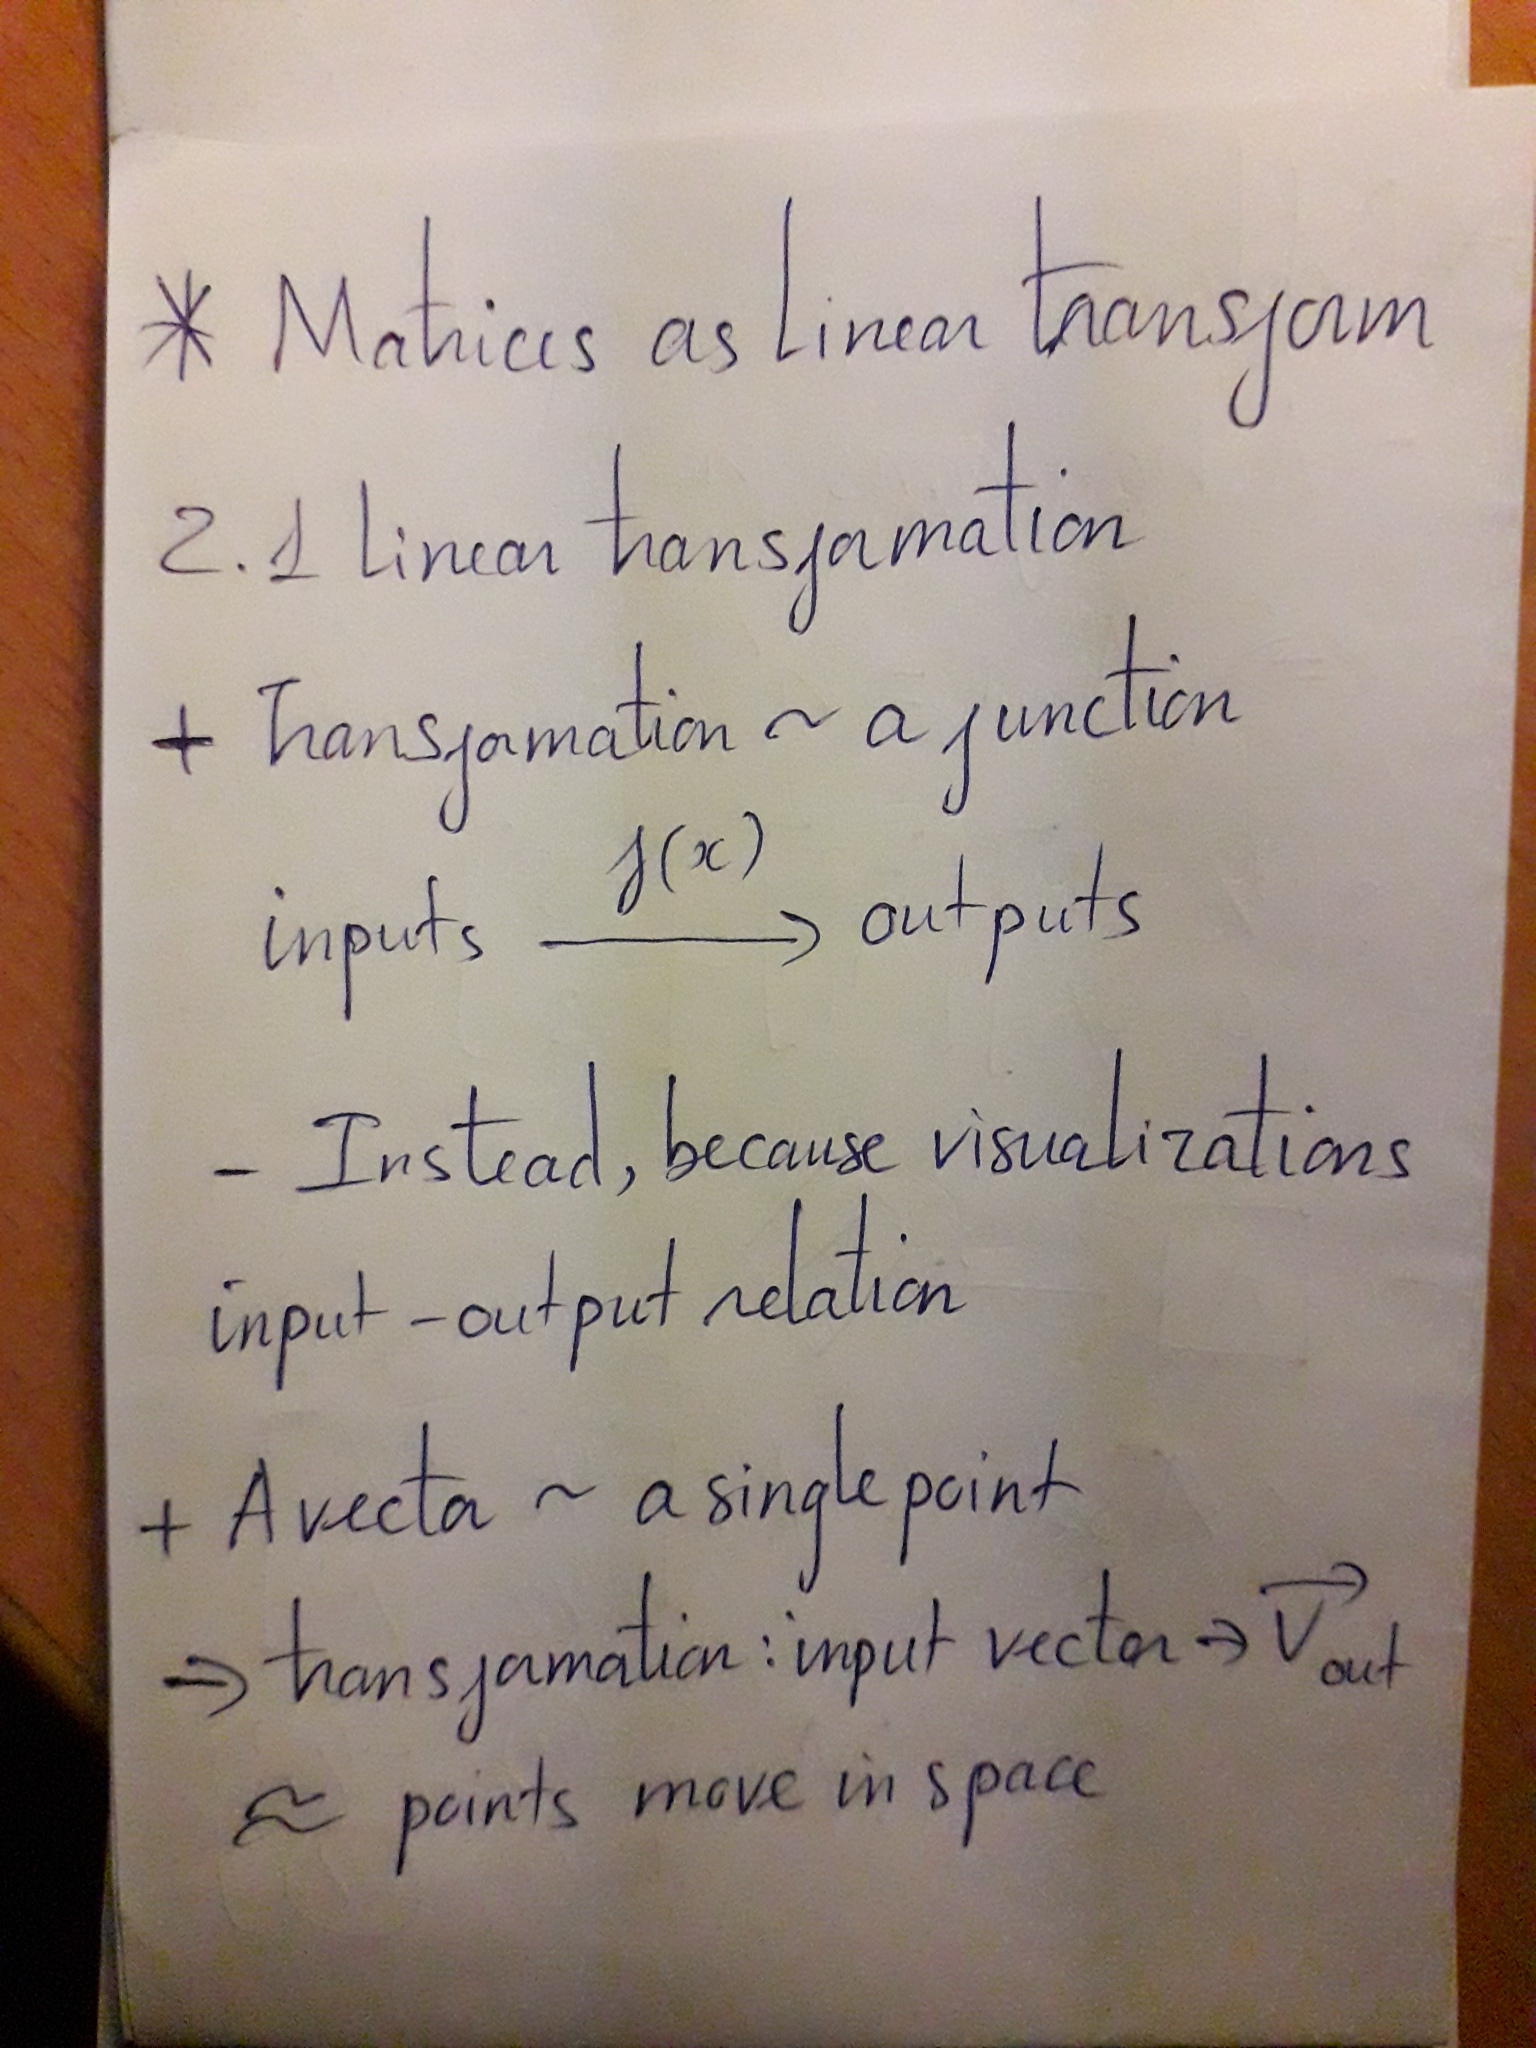 * Matrices as Linear transform
2.1 Linear transformation
+ Transformation ~ a function
f(x)
inputs → outputs
- Instead, because visualizations
input - output relation
+ A vector ~ a single point
⇒ transformation: input vector → V⃗out
≈ points move in space